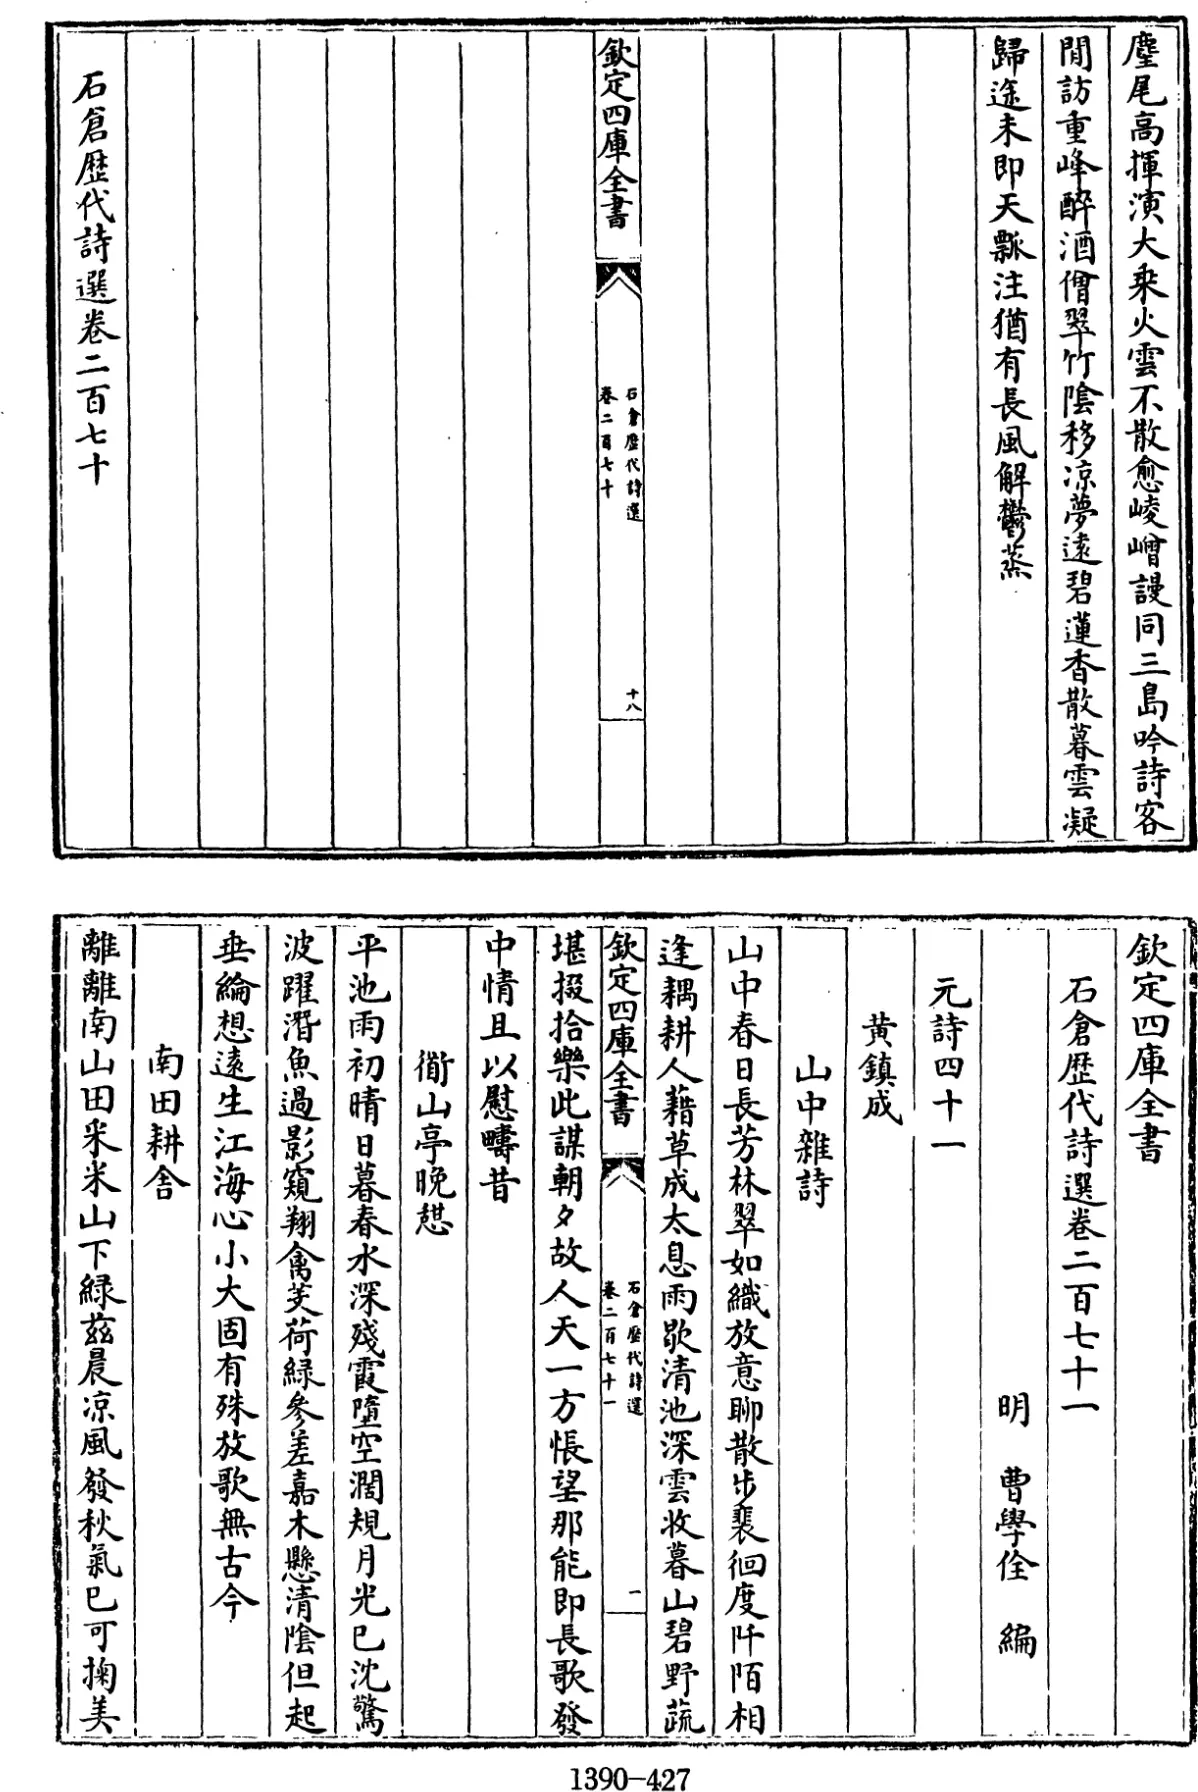 麈尾高揮演大乗火雲不散愈崚嶒謾同三島吟詩客
閒訪重峰醉酒僧翠竹陰移凉夢遠碧蓮香散暮雲凝
歸途未即天瓢注猶有長風解鬱蒸
欽定四庫全書
石倉歴代詩選
卷二百七十
十八
石倉歴代詩選卷二百七十
欽定四庫全書
石倉歴代詩選卷二百七十一
明 曹學佺 編
元詩四十一
黄鎮成
山中雜詩
山中春日長芳林翠如織放意聊散步裵徊度阡陌相
逢耦耕人藉草成太息雨歇清池深雲收暮山碧野蔬
欽定四庫全書
石倉歴代詩選
卷二百七十一
一
堪掇拾樂此謀朝夕故人天一方悵望那能即長歌發
中情且以慰疇昔
衜山亭晚憇
平池雨初晴日暮春水深殘霞墮空濶規月光已沈驚
波躍潛魚過影窺翔禽芰荷緑參差嘉木懸清陰但起
垂綸想遠生江海心小大固有殊放歌無古今
南田耕舍
離離南山田采米山下緑兹晨凉風發秋氣已可掬美
1390-427